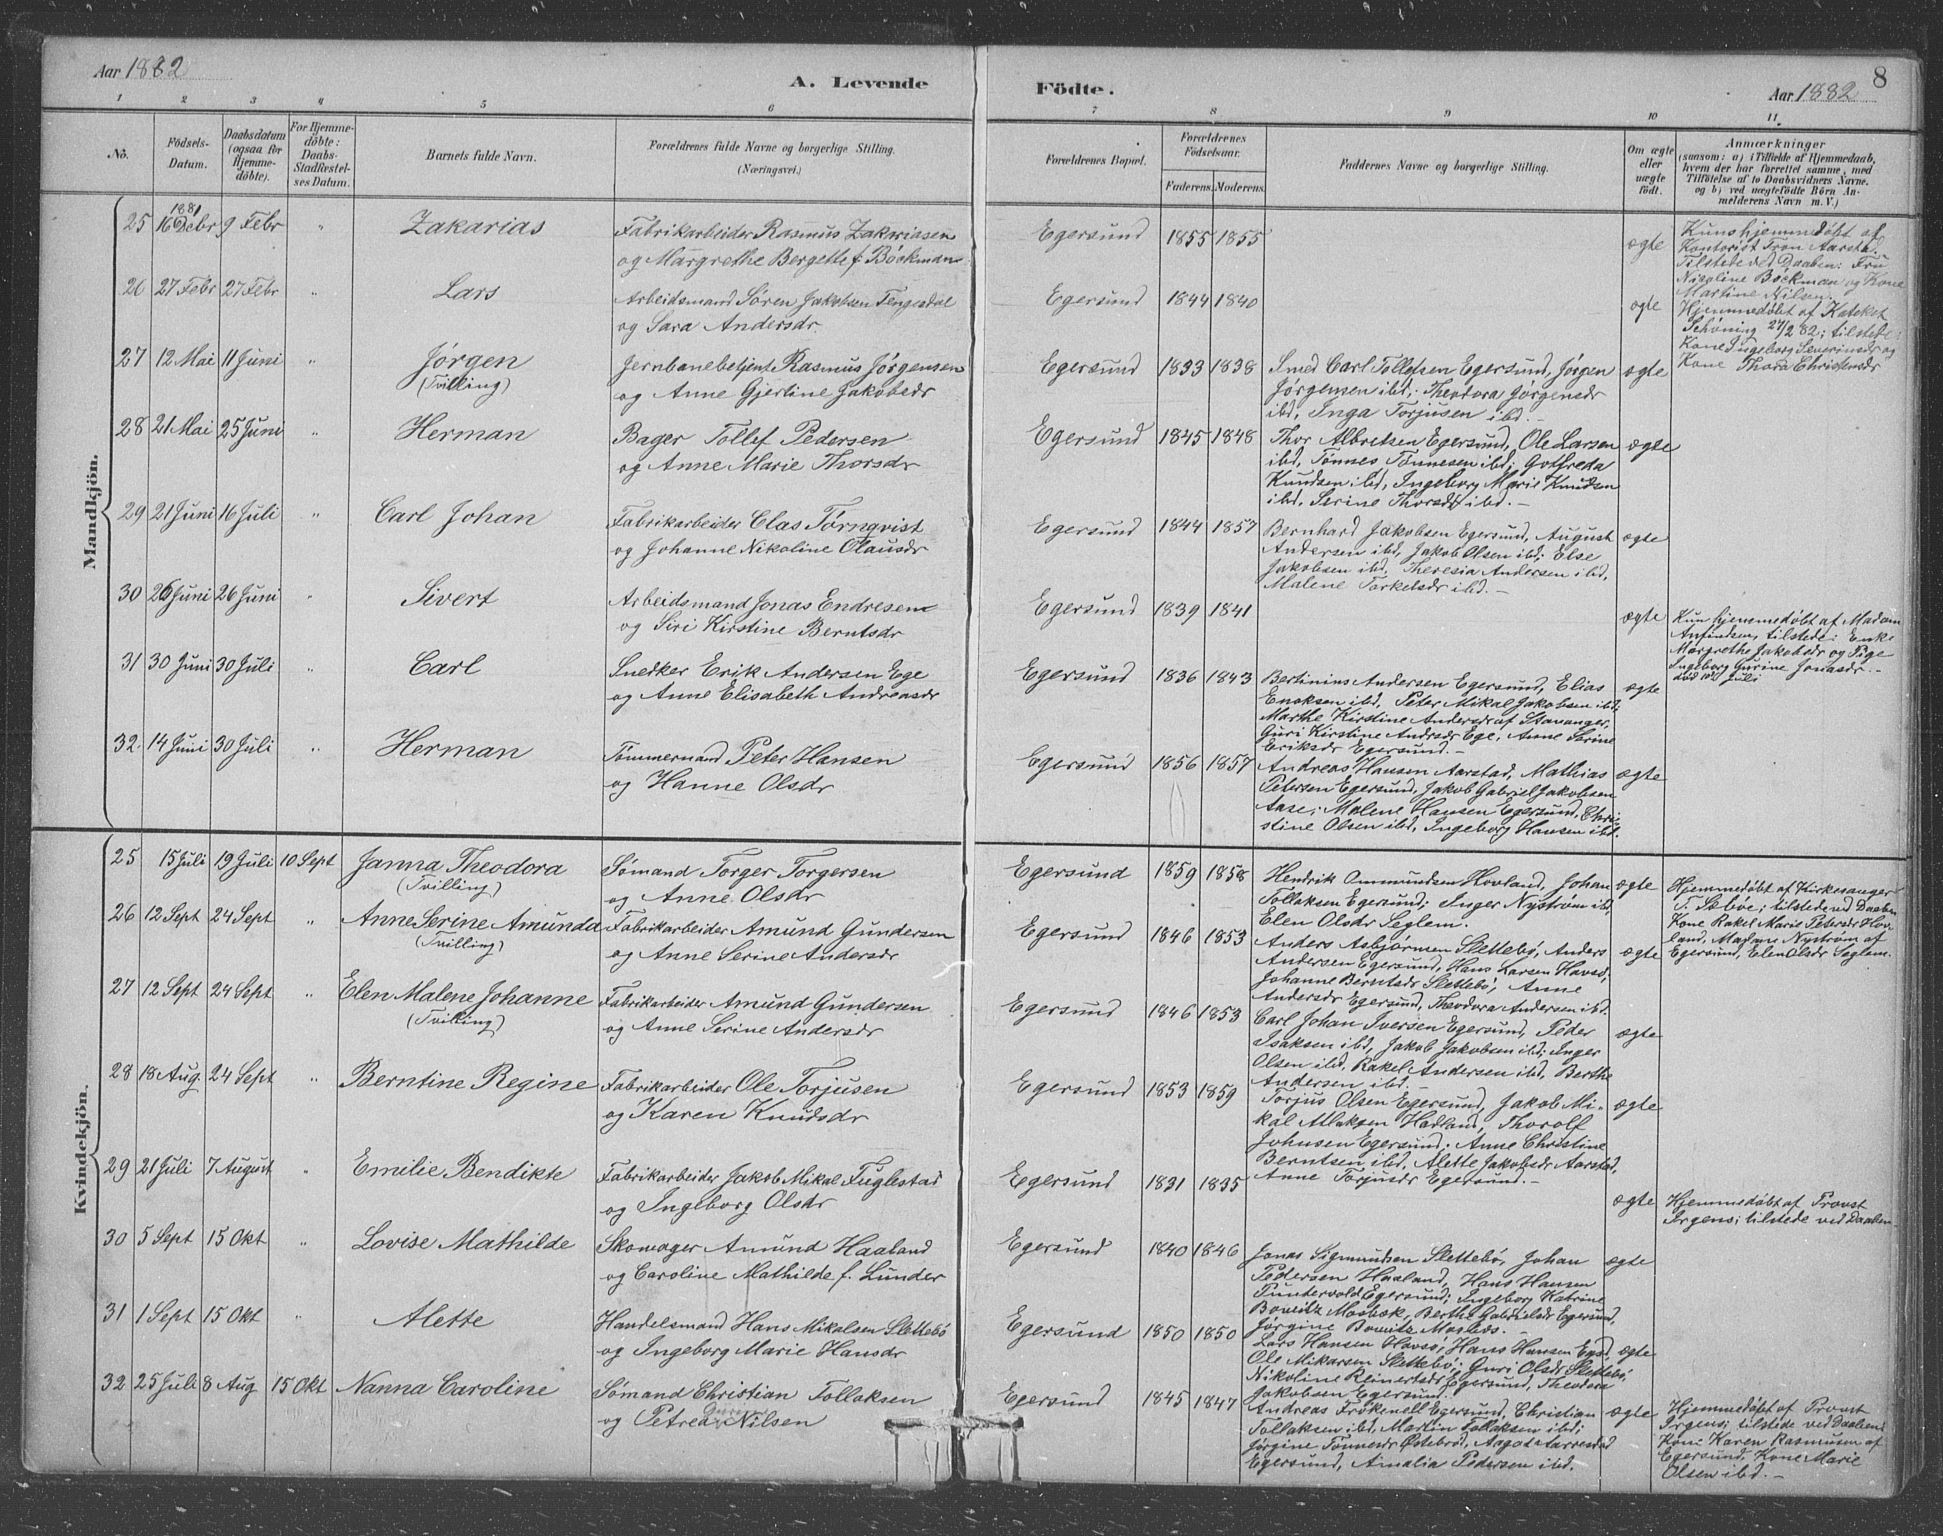 Aar 1882
A. Levende
Födte.
Aar 1882
8
1 2 3 4 5 6 7 8 9 10 11
No.
Födsels-
Datum.
Daabsdatum
(ogsaa for
Hjemme-
döbte).
For Hjemme-
döbte:
Daabs-
Stadfæstel-
ses Datum.
Barnets fulde Navn.
Forældrenes fulde Navne og borgerlige Stilling.
(Næringsvei.)
Forældrenes Bopæl.
Forældrenes
Födselsaar.
Faderens. Moderens.
Faddernes Navne og borgerlige Stilling.
Om ægte
eller
uægte
födt.
Anmærkninger
(saasom: a) i Tilfælde af Hjemmedaab,
hvem der har forrettet samme, med
Tilföielse af to Daabsvidners Navne.
og b) ved uægtefödte Börn An-
melderens Navn m. V.)
Mandkjön.
25 1881 16 Debr 9 Febr " Zakarias
Fabrikarbeider Rasmus Zakariassen
og Margrethe Bergette f. Böckman
Egersund 1855 1855 ægte
Kun hjemmedøbt af
Kontorist Tron Aarstad
Tilstede ved Daaben: Fru
Nicoline Böckman og Kone
Martine Nilsen.
26 27 Febr 27 Febr " Lars
Arbeidsmand Søren Jakobsen Tengesdal
og Sara Andersdr
Egersund 1844 1840 ægte
Hjemmedøbt af Katekst
Schöning 27/2 82; tilstede:
Kone Ingeborg Severinsdr og
Kone Thora Christensdr
27 12 Mai 11 Juni " Jørgen
(Tvilling)
Jernbanebetjent Rasmus Jørgensen
og Anne Gjertine Jakobsdr
Egersund 1833 1838
Smed Carl Tollefsen Egersund, Jörgen
Jörgensen ibd; Theodora Jörgensdr
ibd, Inga Torjusen ibd.
ægte
28 21 Mai 25 Juni " Herman
Bager Tollef Pedersen
og Anne Marie Thorsdr
Egersund 1845 1848
Thor Albretsen Egersund, Ole Larsen
ibd, Tönnes Tönnesen ibd; Gotfreda
Knudsen ibd, Ingeborg Marie Knudsen
ibd, Serine Thorsdr ibd.
ægte
29 21 Juni 16 Juli " Carl Johan
Fabrikarbeider Clas Törnqvist
og Johanne Nikoline Olausdr
Egersund 1844 1857
Bernhard Jakobsen Egersund, August
Andersen ibd, Jakob Olsen ibd; Else
Jakobsen ibd, Theresia Andersen ibd,
Malene Torkelsdr ibd.
ægte
30 26 Juni 26 Juni " Sivert
Arbeidsmand Jonas Endresen
og Siri Kirstine Berntsdr
Egersund 1839 1841 ægte
Kun hjemmedøbt af Madam
Anfindsen, tilstede: Enke
Margrethe Jakobsdr og Pige
Ingeborg Gurine Jonasdr.
31 30 Juni 30 Juli " Carl
Snedker Erik Andersen Ege
og Anne Elisabeth Andreasdr
Egersund 1836 1843
Bertinius Andersen Egersund, Elias
Enoksen ibd, Peter Mikal Jakobsen ibd;
Marthe Kirstine Andersdr af Stavanger,
Guri Kirstine Andrsdr Ege, Anne Serine
Eriksdr Egersund.
ægte
32. 14 Juni 30 Juli " Herman
Tömmermand Peter Hansen
og Hanne Olsdr
Egersund 1856 1857
Andreas Hansen Aarstad, Mathias
Petersen Egersund, Jakob Gabriel Jakobsen
Aase; Malene Hansen Egersund, Chri-
stine Olsen ibd, Ingeborg Hansen ibd.
ægte
Kvindekjön.
25 15 Juli 19 Juli 10 Sept Janna Theodora
(Tvilling)
Sømand Torger Torgersen
og Anne Olsdr
Egersund 1859 1858
Hendrik Ommundsen Hovland, Johan
Tollaksen Egersund; Inger Nyström ibd,
Elen Olsdr Seglem.
ægte
Hjemmedøbt af Kirkesanger
T. Sæbøe; tilstede ved Daaben
Kone Rakel Marie Petersdr Hov-
land, Madame Nyström af
Egersund, Elen Olsdr Seglem.
26 12 Sept 24 Sept " Anne Serine Amunda
(Tvilling)
Fabrikarbeider Amund Gundersen
og Anne Serine Andersdr
Egersund 1846 1853
Anders Asbjörnsen Slettebö, Anders
Andersen Egersund, Hans Larsen Havsö;
Johanne Berntsdr Slettebö, Anne
Andersdr Egersund, Theodora Andersen ibd.
ægte
27 12 Sept 24 Sept " Elen Malene Johanne
(Tvilling)
Fabrikarbeider Amund Gundersen
og Anne Serine Andersdr
Egersund 1846 1853
Carl Johan Iversen Egersund, Peder
Isaksen ibd, Jakob Jakobsen ibd; Inger
Olsen ibd, Rakel Andersen ibd, Berthe
Andersen ibd.
ægte
28 18 Aug. 24 Sept " Berntine Regine
Fabrikarbeider Ole Torjusen
og Karen Knudsdr
Egersund 1853 1859
Torjus Olsen Egersund, Jakob Mi-
kal Atlaksen Hadland, Thorolf
Johnsen Egersund; Anne Christine
Berntsen ibd, Alette Jakobsdr Aarstad,
Anne Torjusdr Egersund.
ægte
29 21 Juli 7 August " Emilie Bendikte
Fabrikarbeider Jakob Mikal Fuglestad
og Ingeborg Olsdr
Egersund 1831 1835 ægte
Hjemmedøbt af Provst
Irgens; tilstede ved Daaben
30 5 Sept 15 Okt " Lovise Mathilde
Skomager Amund Haaland
og Caroline Mathilde f. Lunder
Egersund 1840 1846
Jonas Sigmundsen Slettebö, Johan
Pedersen Haaland, Hans Hansen
Egersund; Ingeborg Katrine
Bowitz Mosbæk, Berthe Gabrielsdr Egersund,
Jörgine Bowitz
ægte
31 1 Sept 15 Okt " Alette
Handelsmand Hans Mikalsen Slettebö
og Ingeborg Marie Hansdr
Egersund 1850 1850
Lars Hansen Havsö, Hans Hansen
Ole Mikalsen Slettebö; Guri Olsdr Slettebö,
Nikoline Reinertsdr Egersund, Theodora
Jakobsen Egersund.
ægte
32 25 Juli 8 Aug 15 Okt Nanna Caroline
Sømand Christian Tollaksen
og Petrea Nilsen
Egersund 1845 1847
Andreas Egersund, Christian
Tollaksen ibd, Martin Tollaksen ibd;
Jörgine Tönnesdr Östebrød,
Egersund, Amalia Pedersen ibd.
ægte
Hjemmedøbt af Provst
Irgens; tilstede ved Daaben:
Kone Karen Rasmussen af
Egersund, Kone Marie
Olsen ibd.